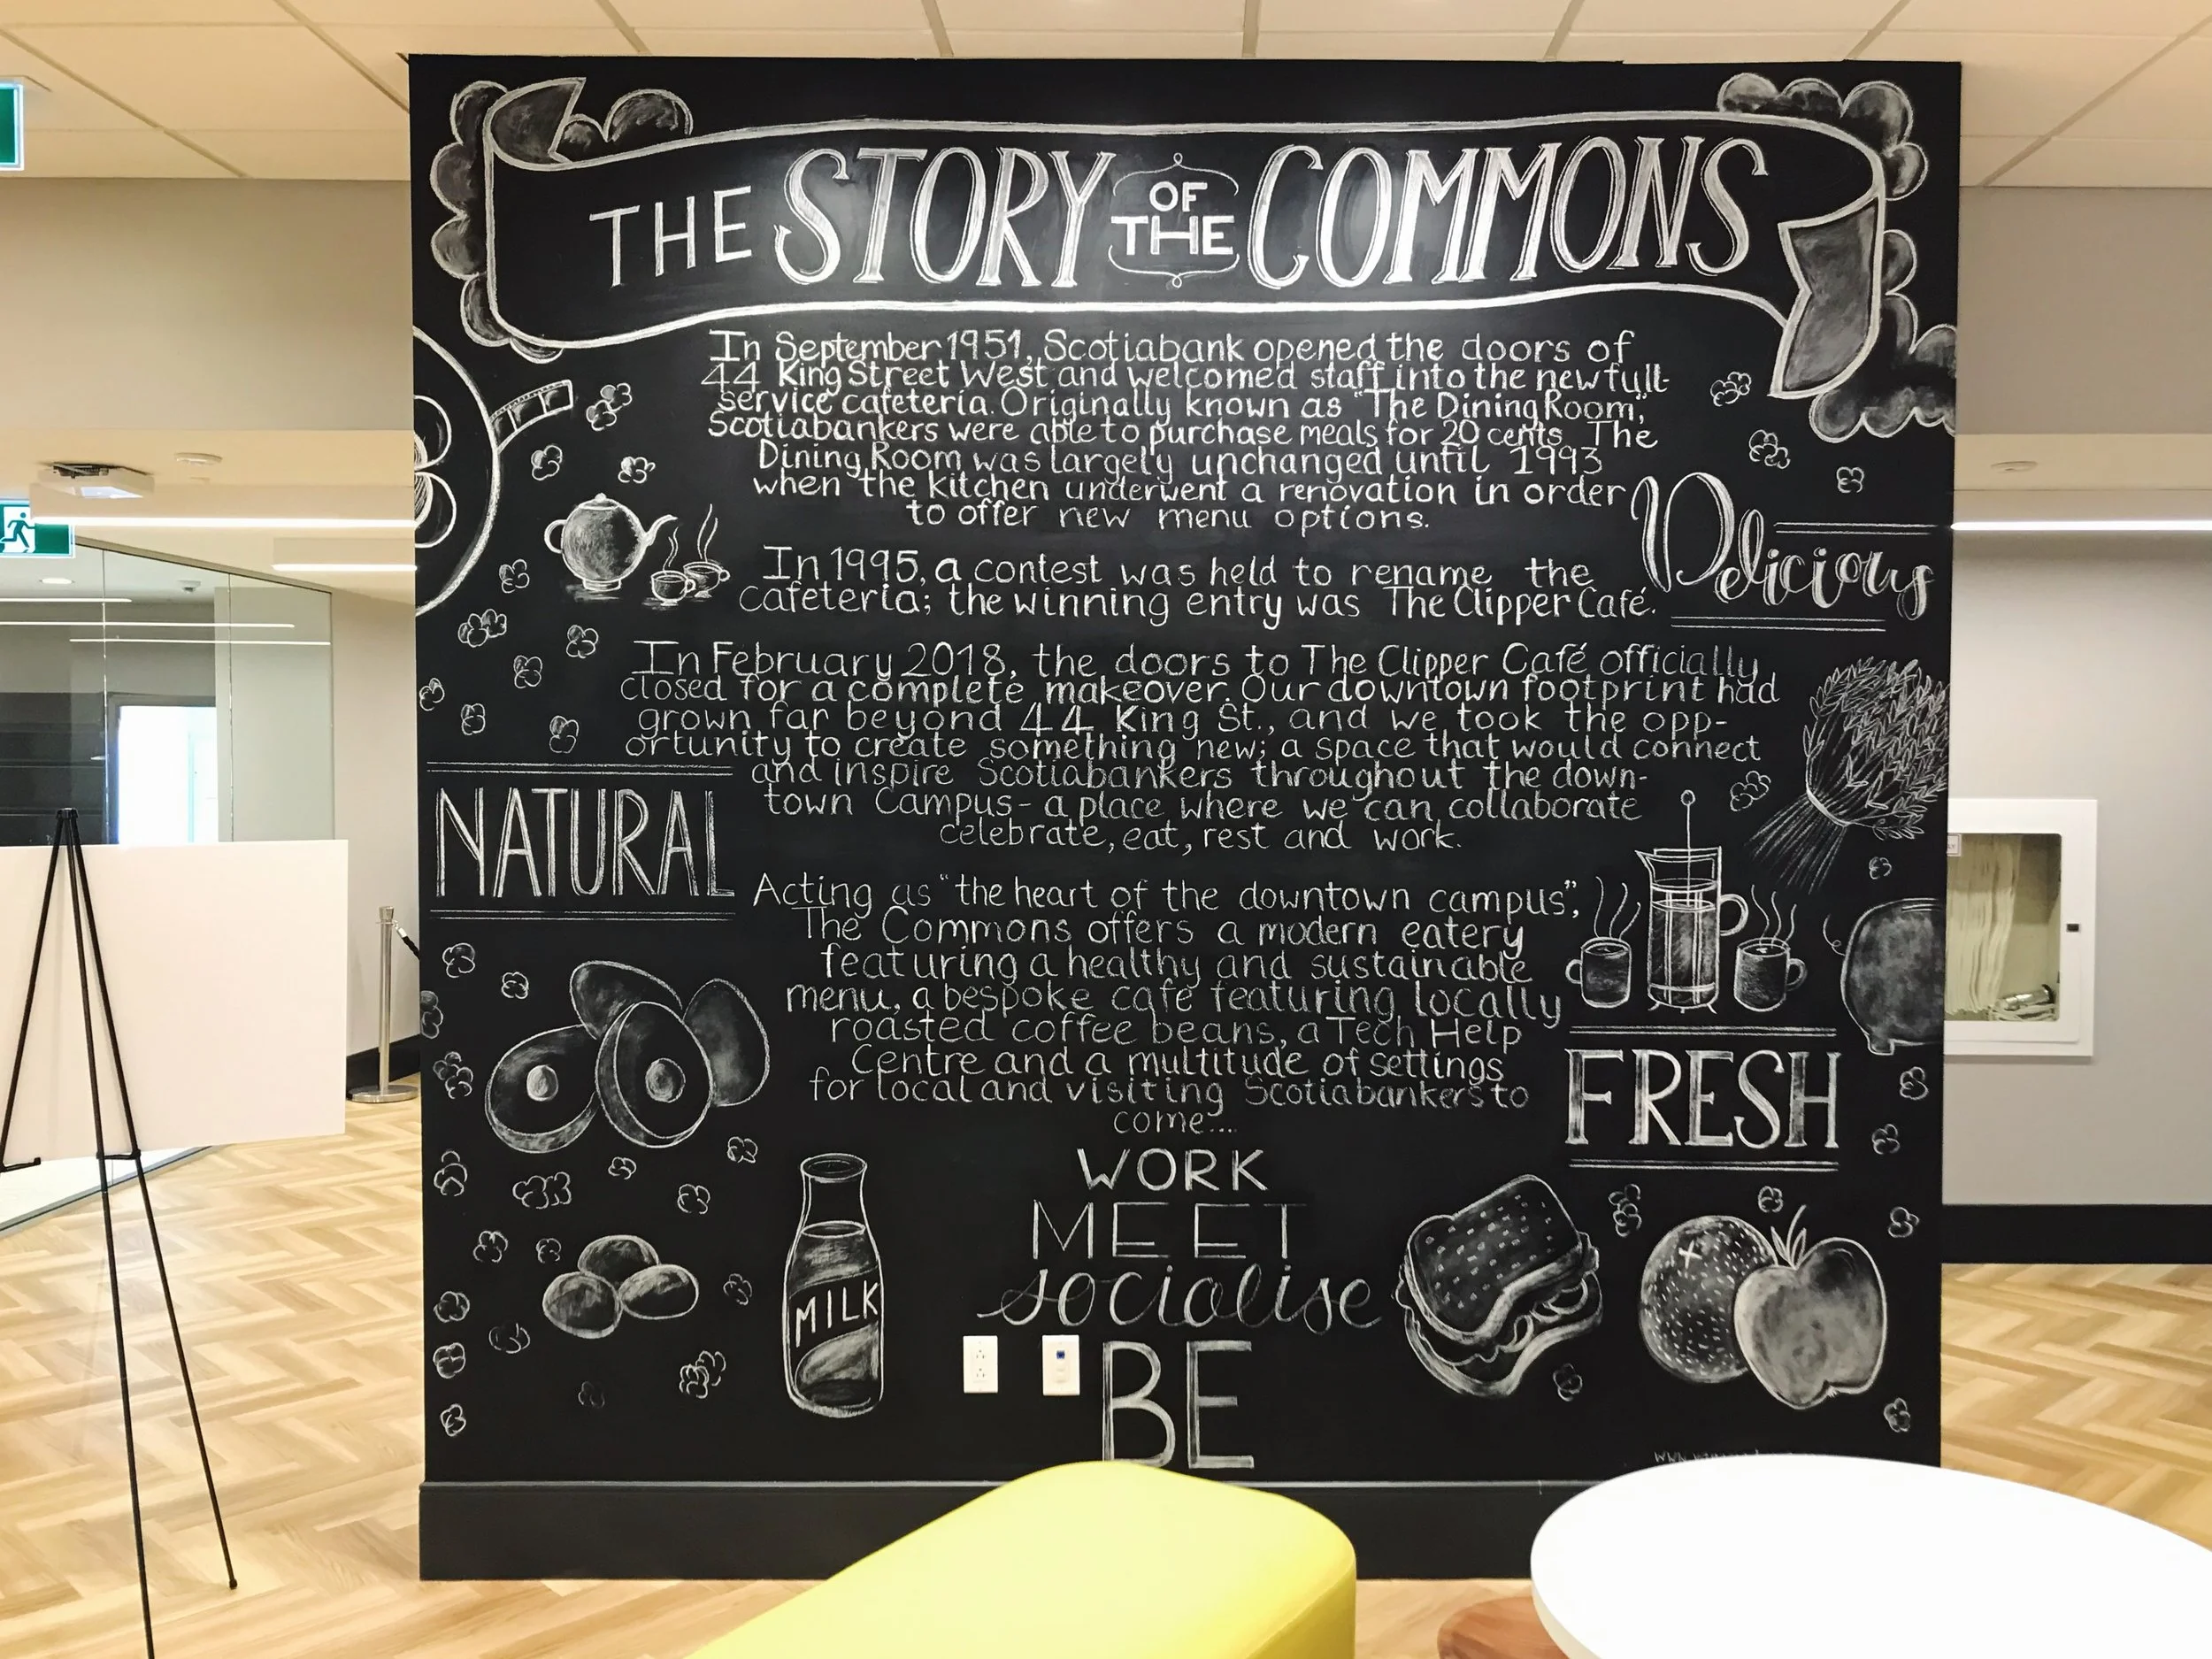 THE STORY OF THE COMMONS
In September 1951, Scotiabank opened the doors of
44 King Street West and welcomed staff into the new full-
service cafeteria. Originally known as "The Dining Room,"
Scotiabankers were able to purchase meals for 20 cents. The
Dining Room was largely unchanged until 1993
when the kitchen underwent a renovation in order
to offer new menu options.
Delicious
In 1995, a contest was held to rename the
cafeteria; the winning entry was The Clipper Café.
In February 2018, the doors to The Clipper Café officially
closed for a complete makeover. Our downtown footprint had
grown far beyond 44 King St., and we took the opp-
ortunity to create something new; a space that would connect
and inspire Scotiabankers throughout the down-
town Campus - a place where we can collaborate
celebrate, eat, rest and work.
NATURAL
Acting as "the heart of the downtown campus",
The Commons offers a modern eatery
featuring a healthy and sustainable
menu, a bespoke café featuring locally
roasted coffee beans, a Tech Help
Centre and a multitude of settings
for local and visiting Scotiabankers to
come....
FRESH
WORK
MEET
socialise
BE
MILK